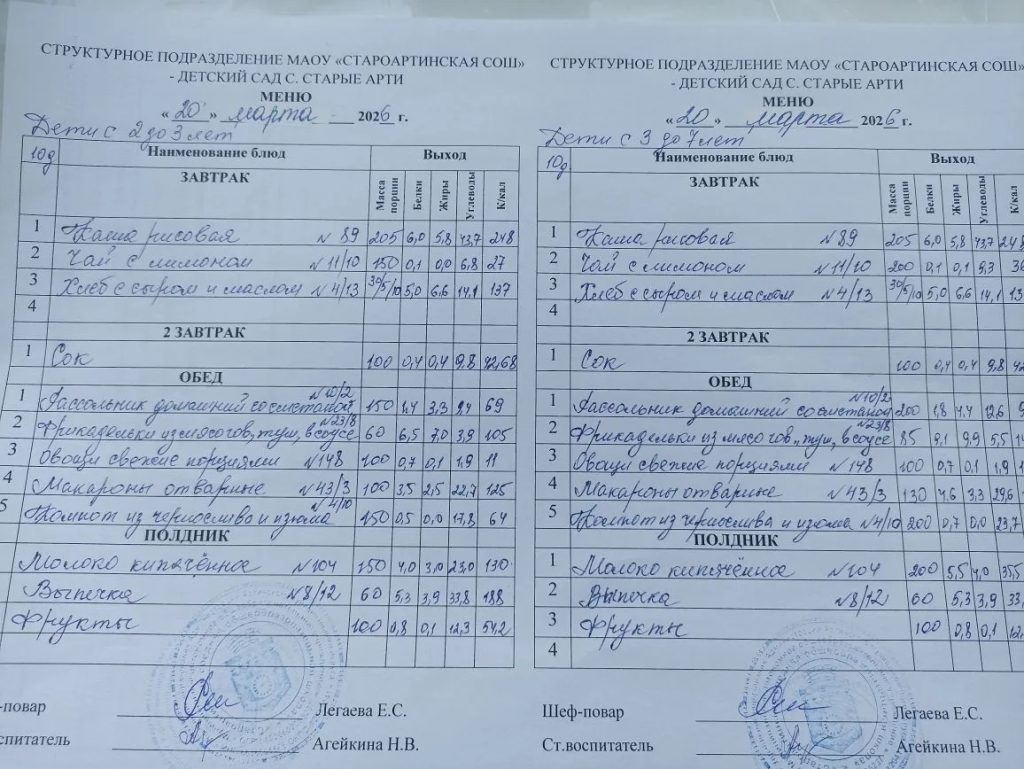 СТРУКТУРНОЕ ПОДРАЗДЕЛЕНИЕ МАОУ «СТАРОАРТИНСКАЯ СОШ»
- ДЕТСКИЙ САД С. СТАРЫЕ АРТИ
МЕНЮ
«20» марта 2026 г.
Дети с 2 до 3 лет
10д Наименование блюд Выход
ЗАВТРАК Масса порции Белки Жиры Углеводы К/кал
1 Каша рисовая №89 205 6,0 5,8 43,7 248
2 Чай с лимоном №11/10 150 0,1 0,0 6,8 27
3 Хлеб с сыром и маслом №4/13 30/5/10 5,0 6,6 14,1 137
4
2 ЗАВТРАК
1 Сок 100 0,4 0,4 9,8 42,68
ОБЕД
1 Рассольник домашний со сметаной №10/2 150 1,4 3,3 9,4 69
2 Фрикадельки из мяса гов, туш, в соусе №23/8 60 6,5 7,0 3,9 105
3 Овощи свежие порциями №148 100 0,7 0,1 1,9 11
4 Макароны отварные №43/3 100 3,5 2,5 22,7 125
5 Компот из чернослива и изюма №4/10 150 0,5 0,0 17,8 64
ПОЛДНИК
Молоко кипячённое №104 150 4,0 3,0 23,0 130
Выпечка №8/12 60 5,3 3,9 33,8 188
Фрукты 100 0,8 0,1 12,3 54,2
ф-повар Легаева Е.С.
спитатель Агейкина Н.В.
СТРУКТУРНОЕ ПОДРАЗДЕЛЕНИЕ МАОУ «СТАРОАРТИНСКАЯ СОШ»
- ДЕТСКИЙ САД С. СТАРЫЕ АРТИ
МЕНЮ
«20» марта 2026 г.
Дети с 3 до 7 лет
10д Наименование блюд Выход
ЗАВТРАК Масса порции Белки Жиры Углеводы К/кал
1 Каша рисовая №89 205 6,0 5,8 43,7 248
2 Чай с лимоном №11/10 200 0,1 0,1 9,3 36
3 Хлеб с сыром и маслом №4/13 30/5/10 5,0 6,6 14,1 13
4
2 ЗАВТРАК
1 Сок 100 0,4 0,4 9,8 42
ОБЕД
1 Рассольник домашний со сметаной №10/2 200 1,8 4,4 12,6 9
2 Фрикадельки из мяса гов, туш, в соусе №23/8 85 9,1 9,9 5,5 14
3 Овощи свежие порциями №148 100 0,7 0,1 1,9 1
4 Макароны отварные №43/3 130 4,6 3,3 29,6 1
5 Компот из чернослива и изюма №4/10 200 0,7 0,0 23,7
ПОЛДНИК
1 Молоко кипячённое №104 200 5,5 4,0 35,5
2 Выпечка №8/12 60 5,3 3,9 33,
3 Фрукты 100 0,8 0,1 12,
4
Шеф-повар Легаева Е.С.
Ст.воспитатель Агейкина Н.В.